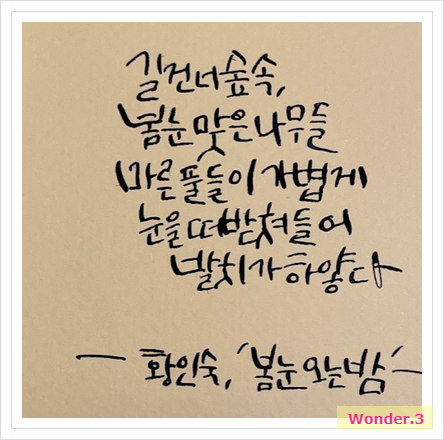 길 건너 숲 속,
봄눈 맞은 나무들
마른 풀들이 가볍게
눈을 떠받쳐들어
발치가 하얗다
— 황인숙, '봄눈 오는 밤' —
Wonder.3